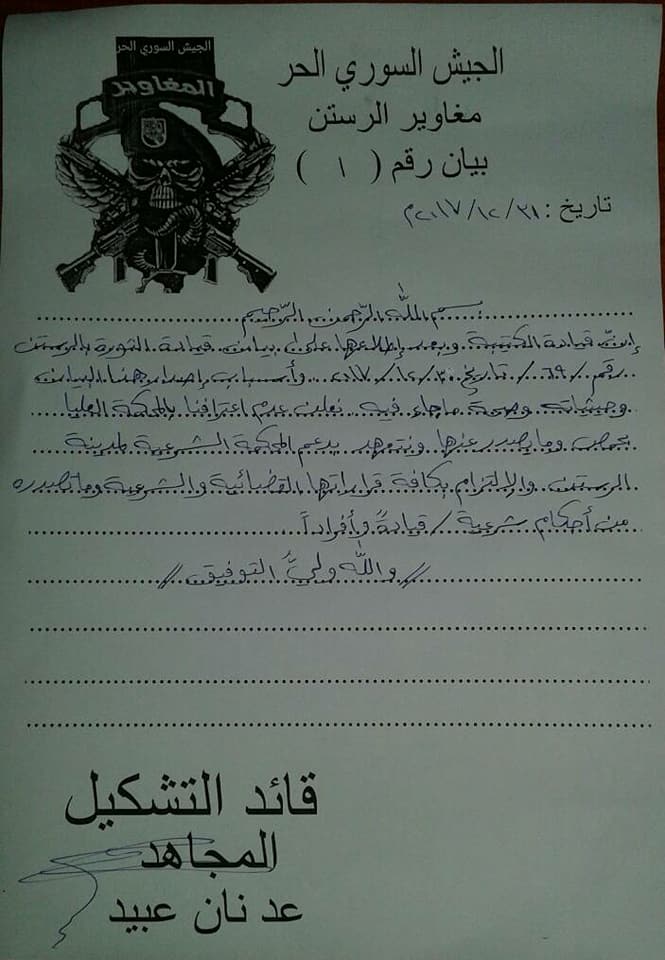 الجيش السوري الحر
المغاوير
الجيش السوري الحر
مغاوير الرستن
بيان رقم ( ١ )
تاريخ : ٣١/١٢/٢٠١٧م
بسم الله الرّحمن الرّحيم
إنّ قيادة الكتيبة وبعد إطلاعها على بيان قيادة الثورة بالرستن
رقم /٦٩/ تاريخ ٣٠/١٢/٢٠١٧ وأسباب إصدار هذا البيان
وحيثياته وصحة ماجاء فيه نعلن عدم اعترافنا بالمحكمة العليا
بحمص وما يصدر عنها ونتعهد بدعم المحكمة الشرعية لمدينة
الرستن والإلتزام بكافة قراراتها القضائية والشرعية وما تصدره
من أحكام شرعية / قيادةً وأفراداً
// والله وليُّ التوفيق //
قائد التشكيل
المجاهد
عدنان عبيد